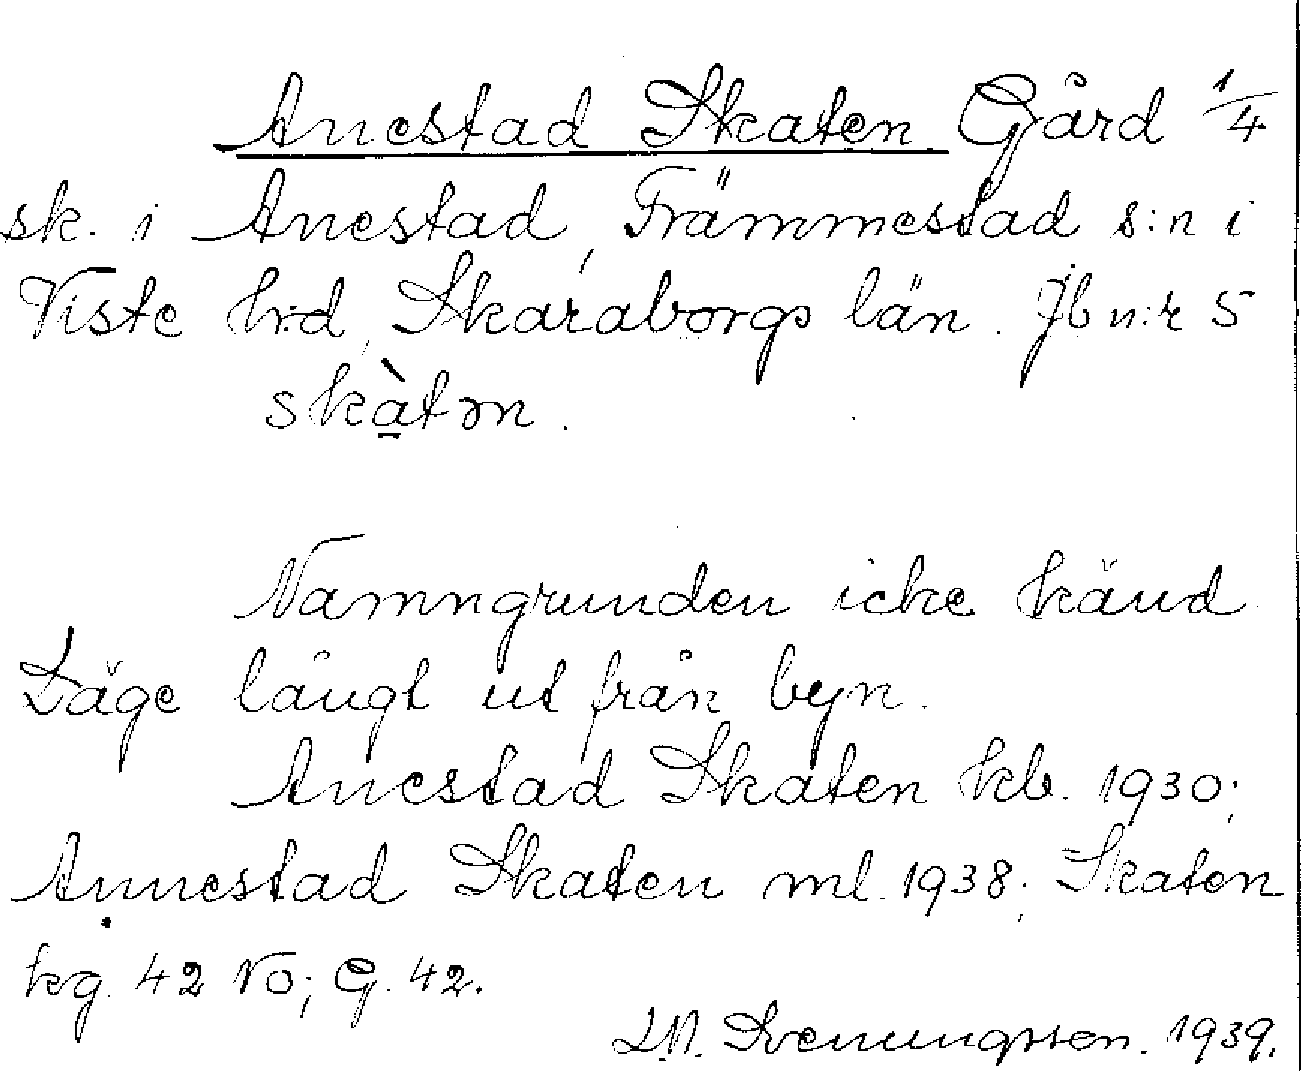 Anestad Skaten Gård 1/4
sk. i Anestad, Främmestad s:n i
Viste h:d, Skaraborgs län. Jb n:r 5
skàtən.
Namngrunden icke känd
Läge långt ut från byn.
Anestad Skaten kb. 1930;
Annestad Skaten ml. 1938; Skaten
kg. 42 NO; G. 42.
Svenungsson. 1939.